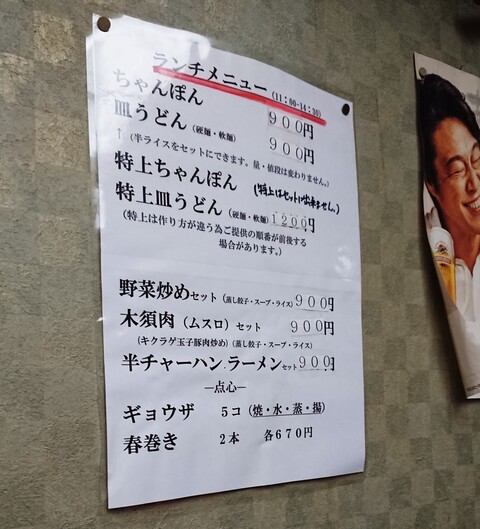 ランチメニュー (11:00-14:30)
ちゃんぽん 900円
皿うどん (硬麺・軟麺) 900円
↑ (半ライスをセットにできます。量・値段は変わりません。)
特上ちゃんぽん (特上はセットに出来ません。)
特上皿うどん (硬麺・軟麺) 1200円
(特上は作り方が違う為ご提供の順番が前後する
場合があります。)
野菜炒めセット (蒸し餃子・スープ・ライス) 900円
木須肉 (ムスロ) セット 900円
(キクラゲ玉子豚肉炒め) (蒸し餃子・スープ・ライス)
半チャーハン.ラーメンセット 900円
―点心―
ギョウザ 5コ (焼・水・蒸・揚)
春巻き 2本 各670円